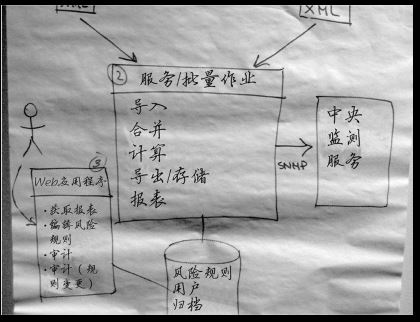 XML
XML
② 服务/批量作业
导入
合并
计算
导出/存储
报表
SNMP
中央
监测
服务
③
Web应用程序
·获取报表
·编辑风险
规则
·审计
·审计(规
则变更)
风险规则
用户
归档